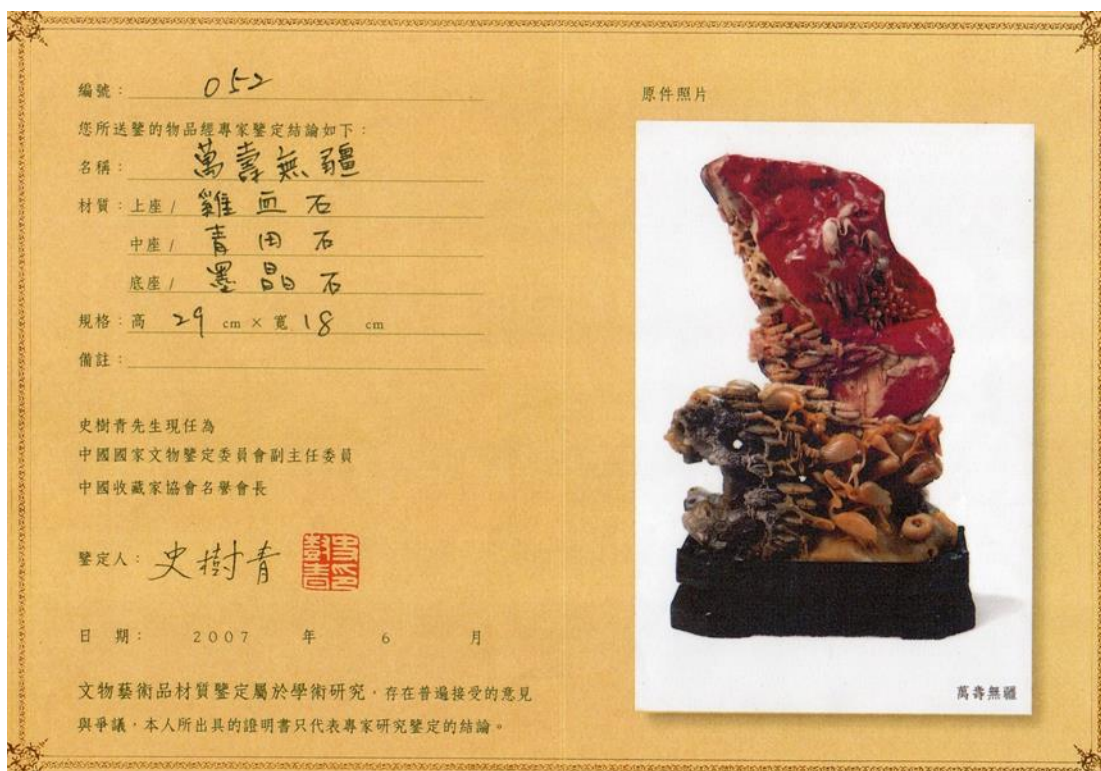 編號：052
您所送鑒的物品經專家鑒定結論如下：
名稱：萬壽無疆
材質：上座/ 雞血石
中座/ 青田石
底座/ 墨晶石
規格：高 29 cm × 寬 18 cm
備註：
史樹青先生現任為
中國國家文物鑒定委員會副主任委員
中國收藏家協會名譽會長
鑒定人：史樹青
史樹青印
日 期： 2007 年 6 月
文物藝術品材質鑒定屬於學術研究，存在普遍接受的意見
與爭議，本人所出具的證明書只代表專家研究鑒定的結論。
原件照片
萬壽無疆